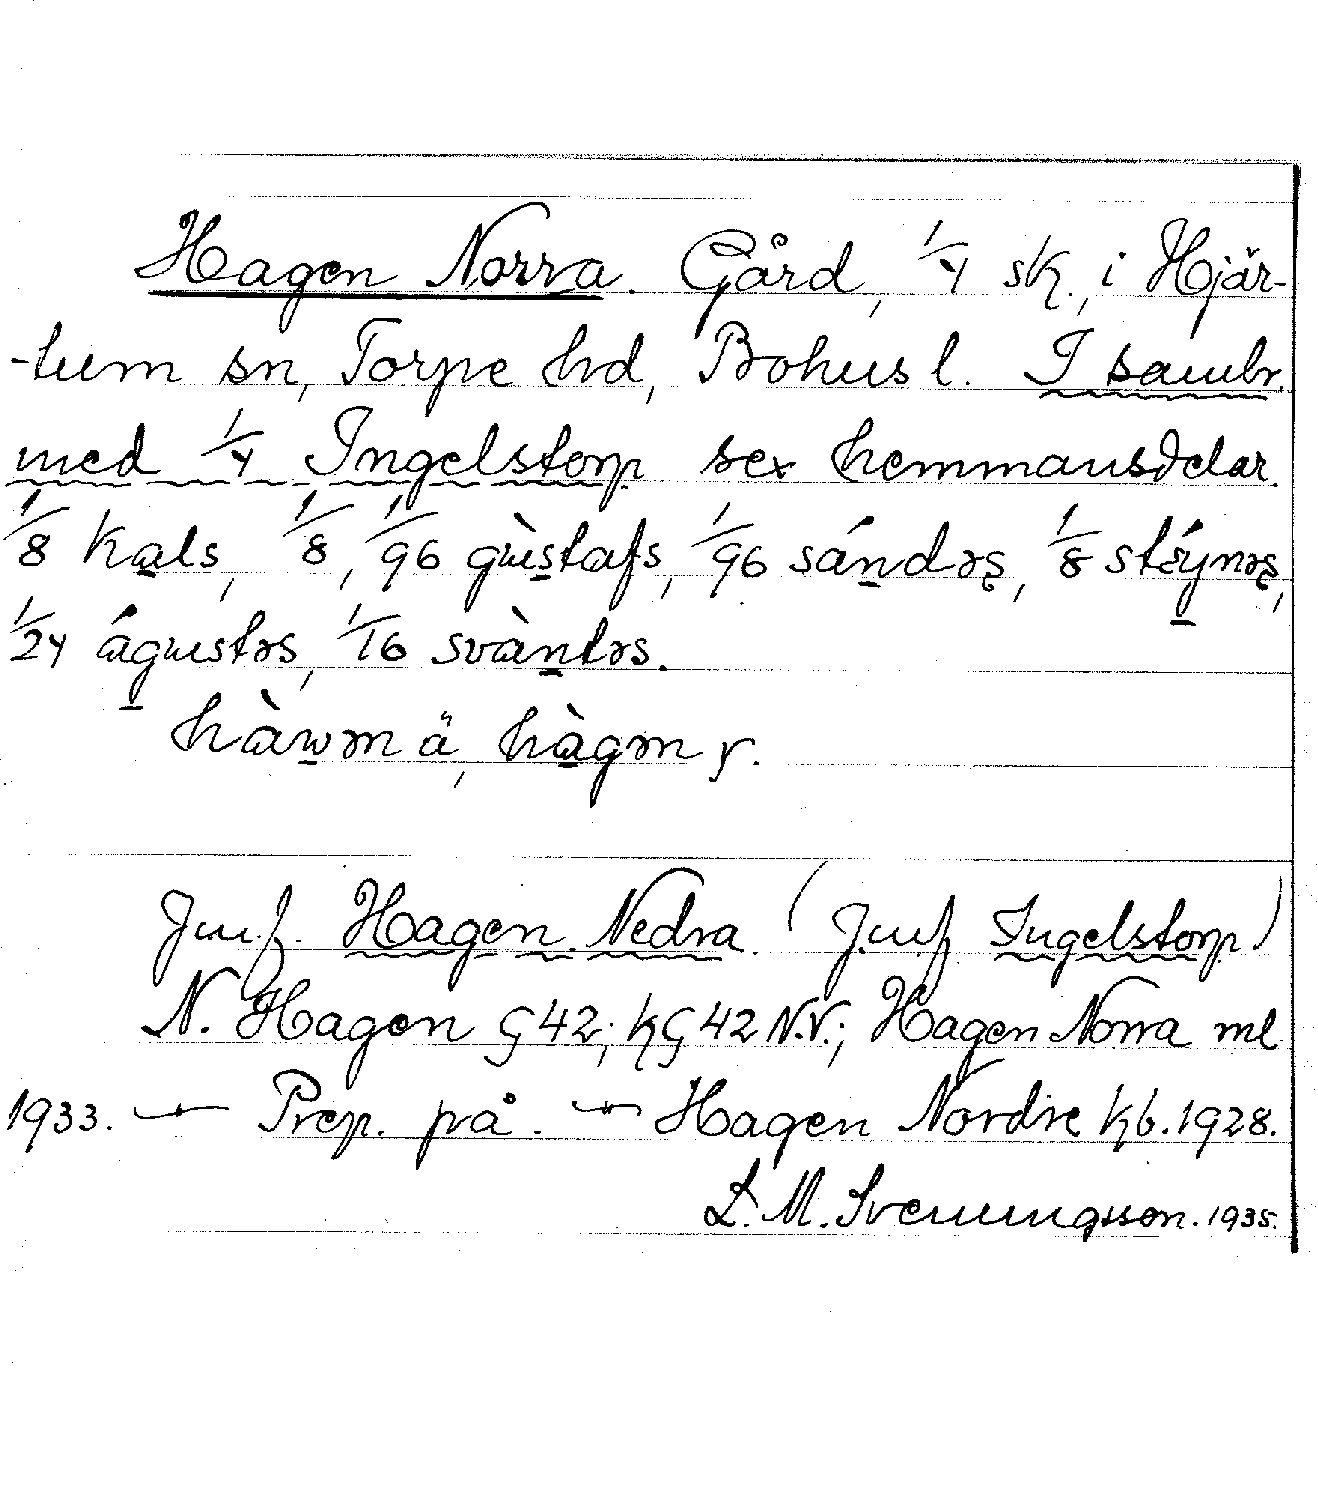 Hagen Norra. Gård, 1/4 sk., i Hjär-
-tum sn, Torpe hd, Bohus l. I sambr.
med 1/4 Ingelstorp sex hemmansdelar.
1/8 kals, 1/8, 1/96 gùstafs, 1/96 sándəs, 1/8 stäýnəs,
1/24 águstəs, 1/16 svàntəs.
hàwən ä, hàgən y.
Jmf. Hagen Nedra. (Jmf Ingelstorp)
N. Hagen G 42; kG 42 N.V.; Hagen Norra ml
1933. — Prep. på. — Hagen Nordre kb. 1928.
L. M. Svenungsson. 1935.